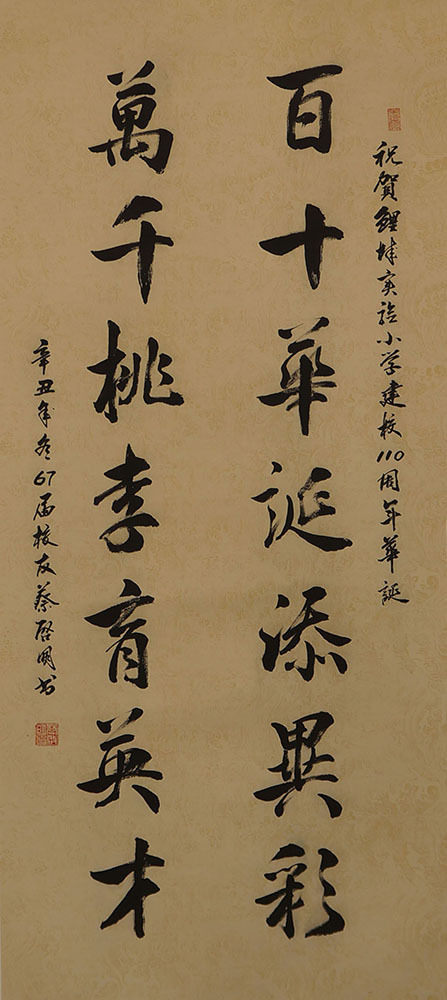 祝賀鯉城实验小学建校110周年華誕
百十華誕添異彩
萬千桃李育英才
辛丑年冬67届校友蔡啓明书